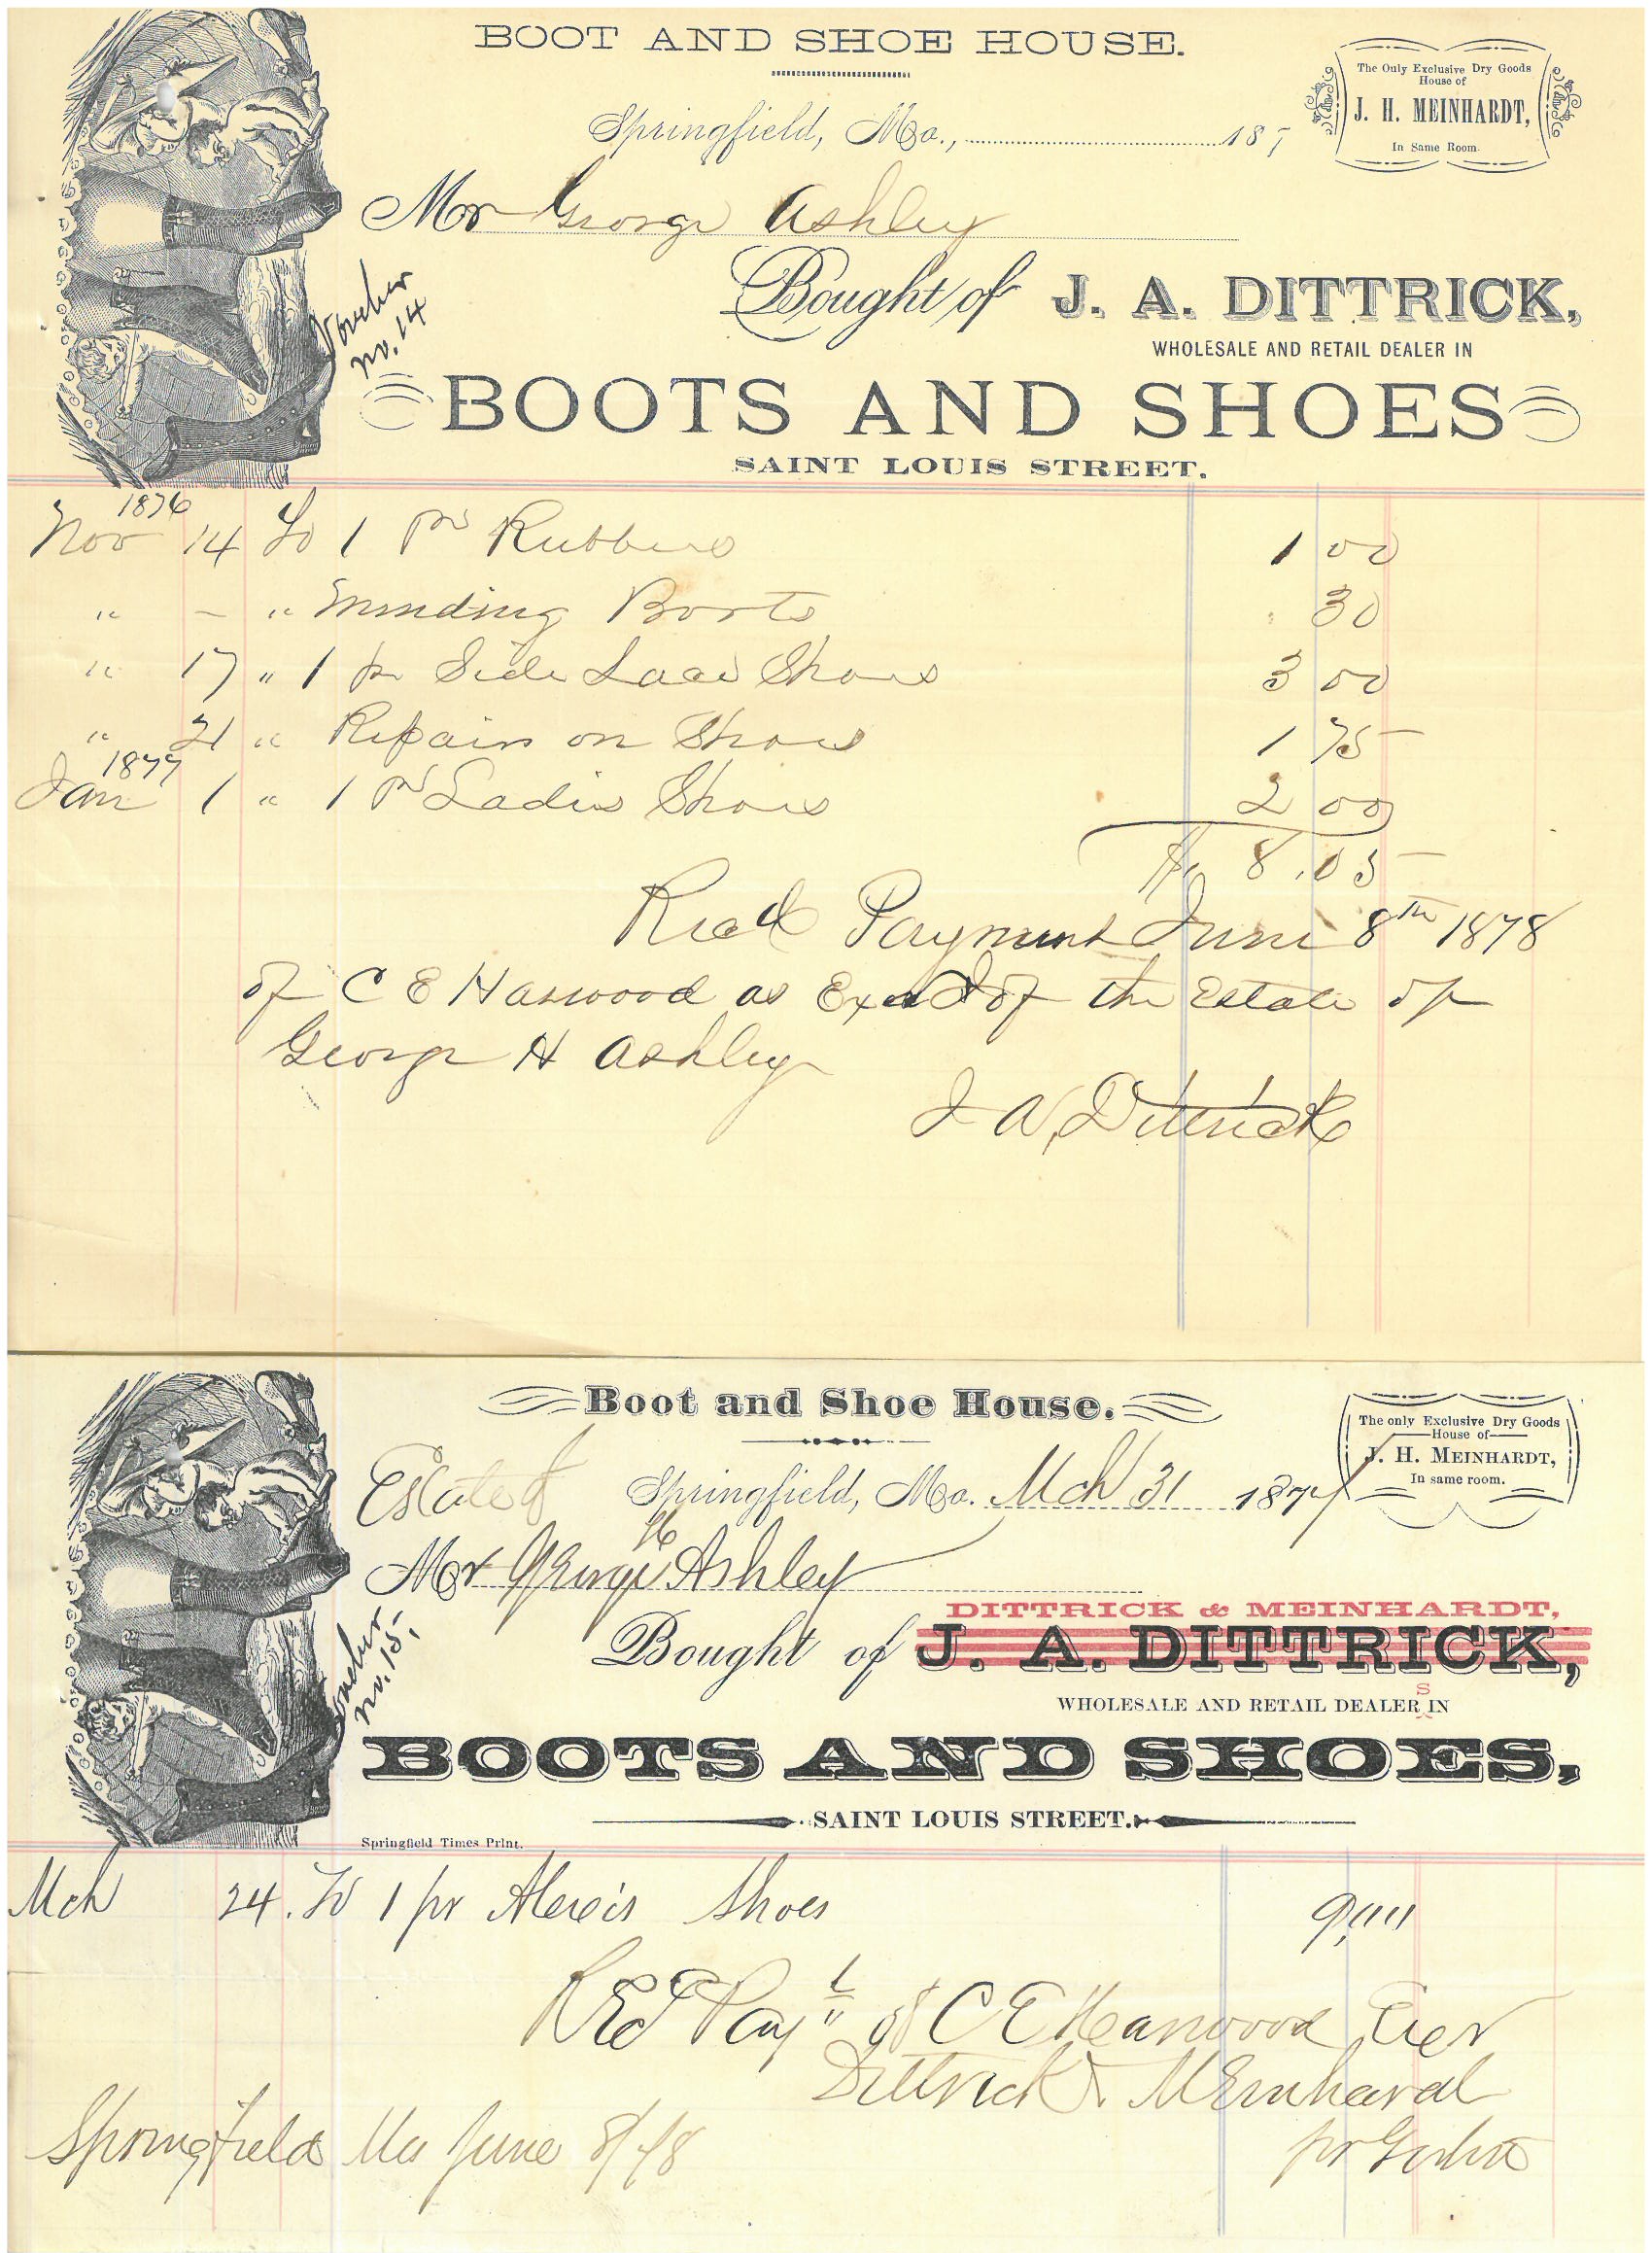 BOOT AND SHOE HOUSE.
The Only Exclusive Dry Goods
House of
J. H. MEINHARDT,
In Same Room.
Springfield, Mo., 187
Mr George Ashley
Voucher
no. 14
Bought of J. A. DITTRICK,
WHOLESALE AND RETAIL DEALER IN
BOOTS AND SHOES
SAINT LOUIS STREET.
1876
Nov 14 To 1 pr Rubbers 1 00
" - " Mending Boots 30
" 17 " 1 pr Side Lace Shoes 3 00
" 21 " Repairs on Shoes 1 75
1877
Jan 1 " 1 pr Ladies Shoes 2 00
$ 8.05
Recd Payment June 8th 1878
of C E Harwood as of the Estate of
George H Ashley
J A, Dittrick
Boot and Shoe House.
The only Exclusive Dry Goods
House of
J. H. MEINHARDT,
In same room.
Estate of Springfield, Mo. Mch 31 1877
Mr George H Ashley
Voucher
no. 15,
DITTRICK & MEINHARDT,
Bought of J. A. DITTRICK,
WHOLESALE AND RETAIL DEALERS IN
BOOTS AND SHOES,
SAINT LOUIS STREET.
Springfield Times Print.
Mch 24. To 1 pr Alexis Shoes
Recd Payt of C E Harwood Exer
Dittrick & Meinhardt
Springfield Mo June 8/78 pr